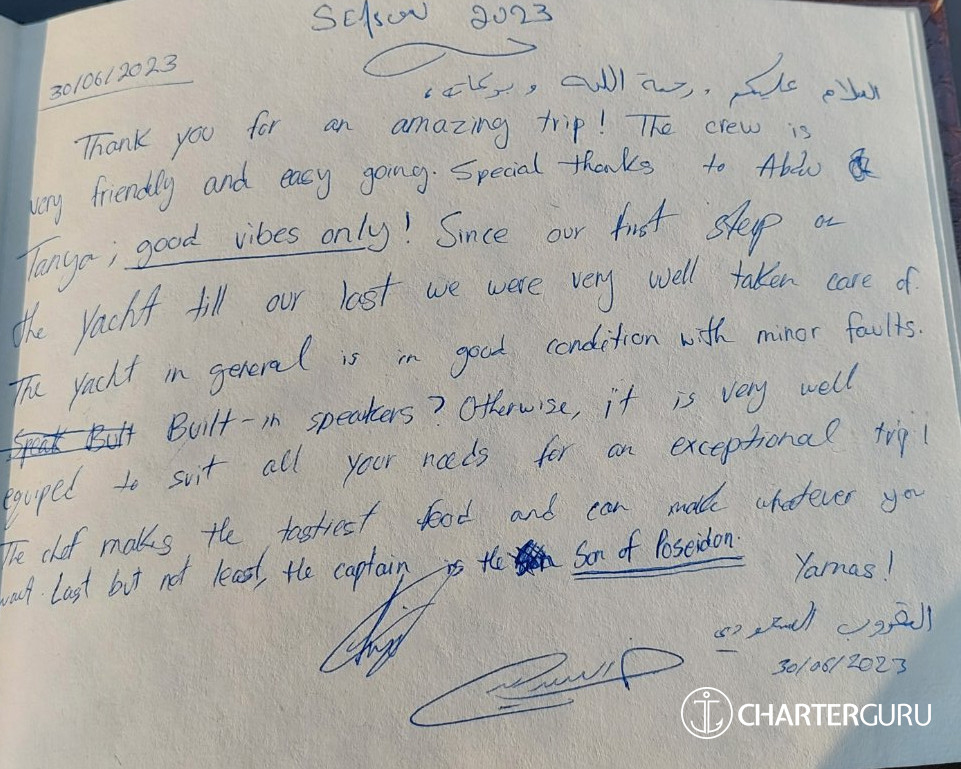 SEASON 2023
30/06/2023
السلام عليكم ورحمة الله وبركاته،
Thank you for an amazing trip! The crew is
very friendly and easy going. Special thanks to Abdu &
Tanya; good vibes only! Since our first step on
the yacht till our last we were very well taken care of.
The yacht in general is in good condition with minor faults.
Speak Built Built-in speakers? Otherwise, it is very well
equiped to suit all your needs for an exceptional trip!
The chef makes the tastiest food and can make whatever you
want. Last but not least, the captain is the Son of Poseidon.
Yamas!
السعودي
30/06/2023
CHARTERGURU